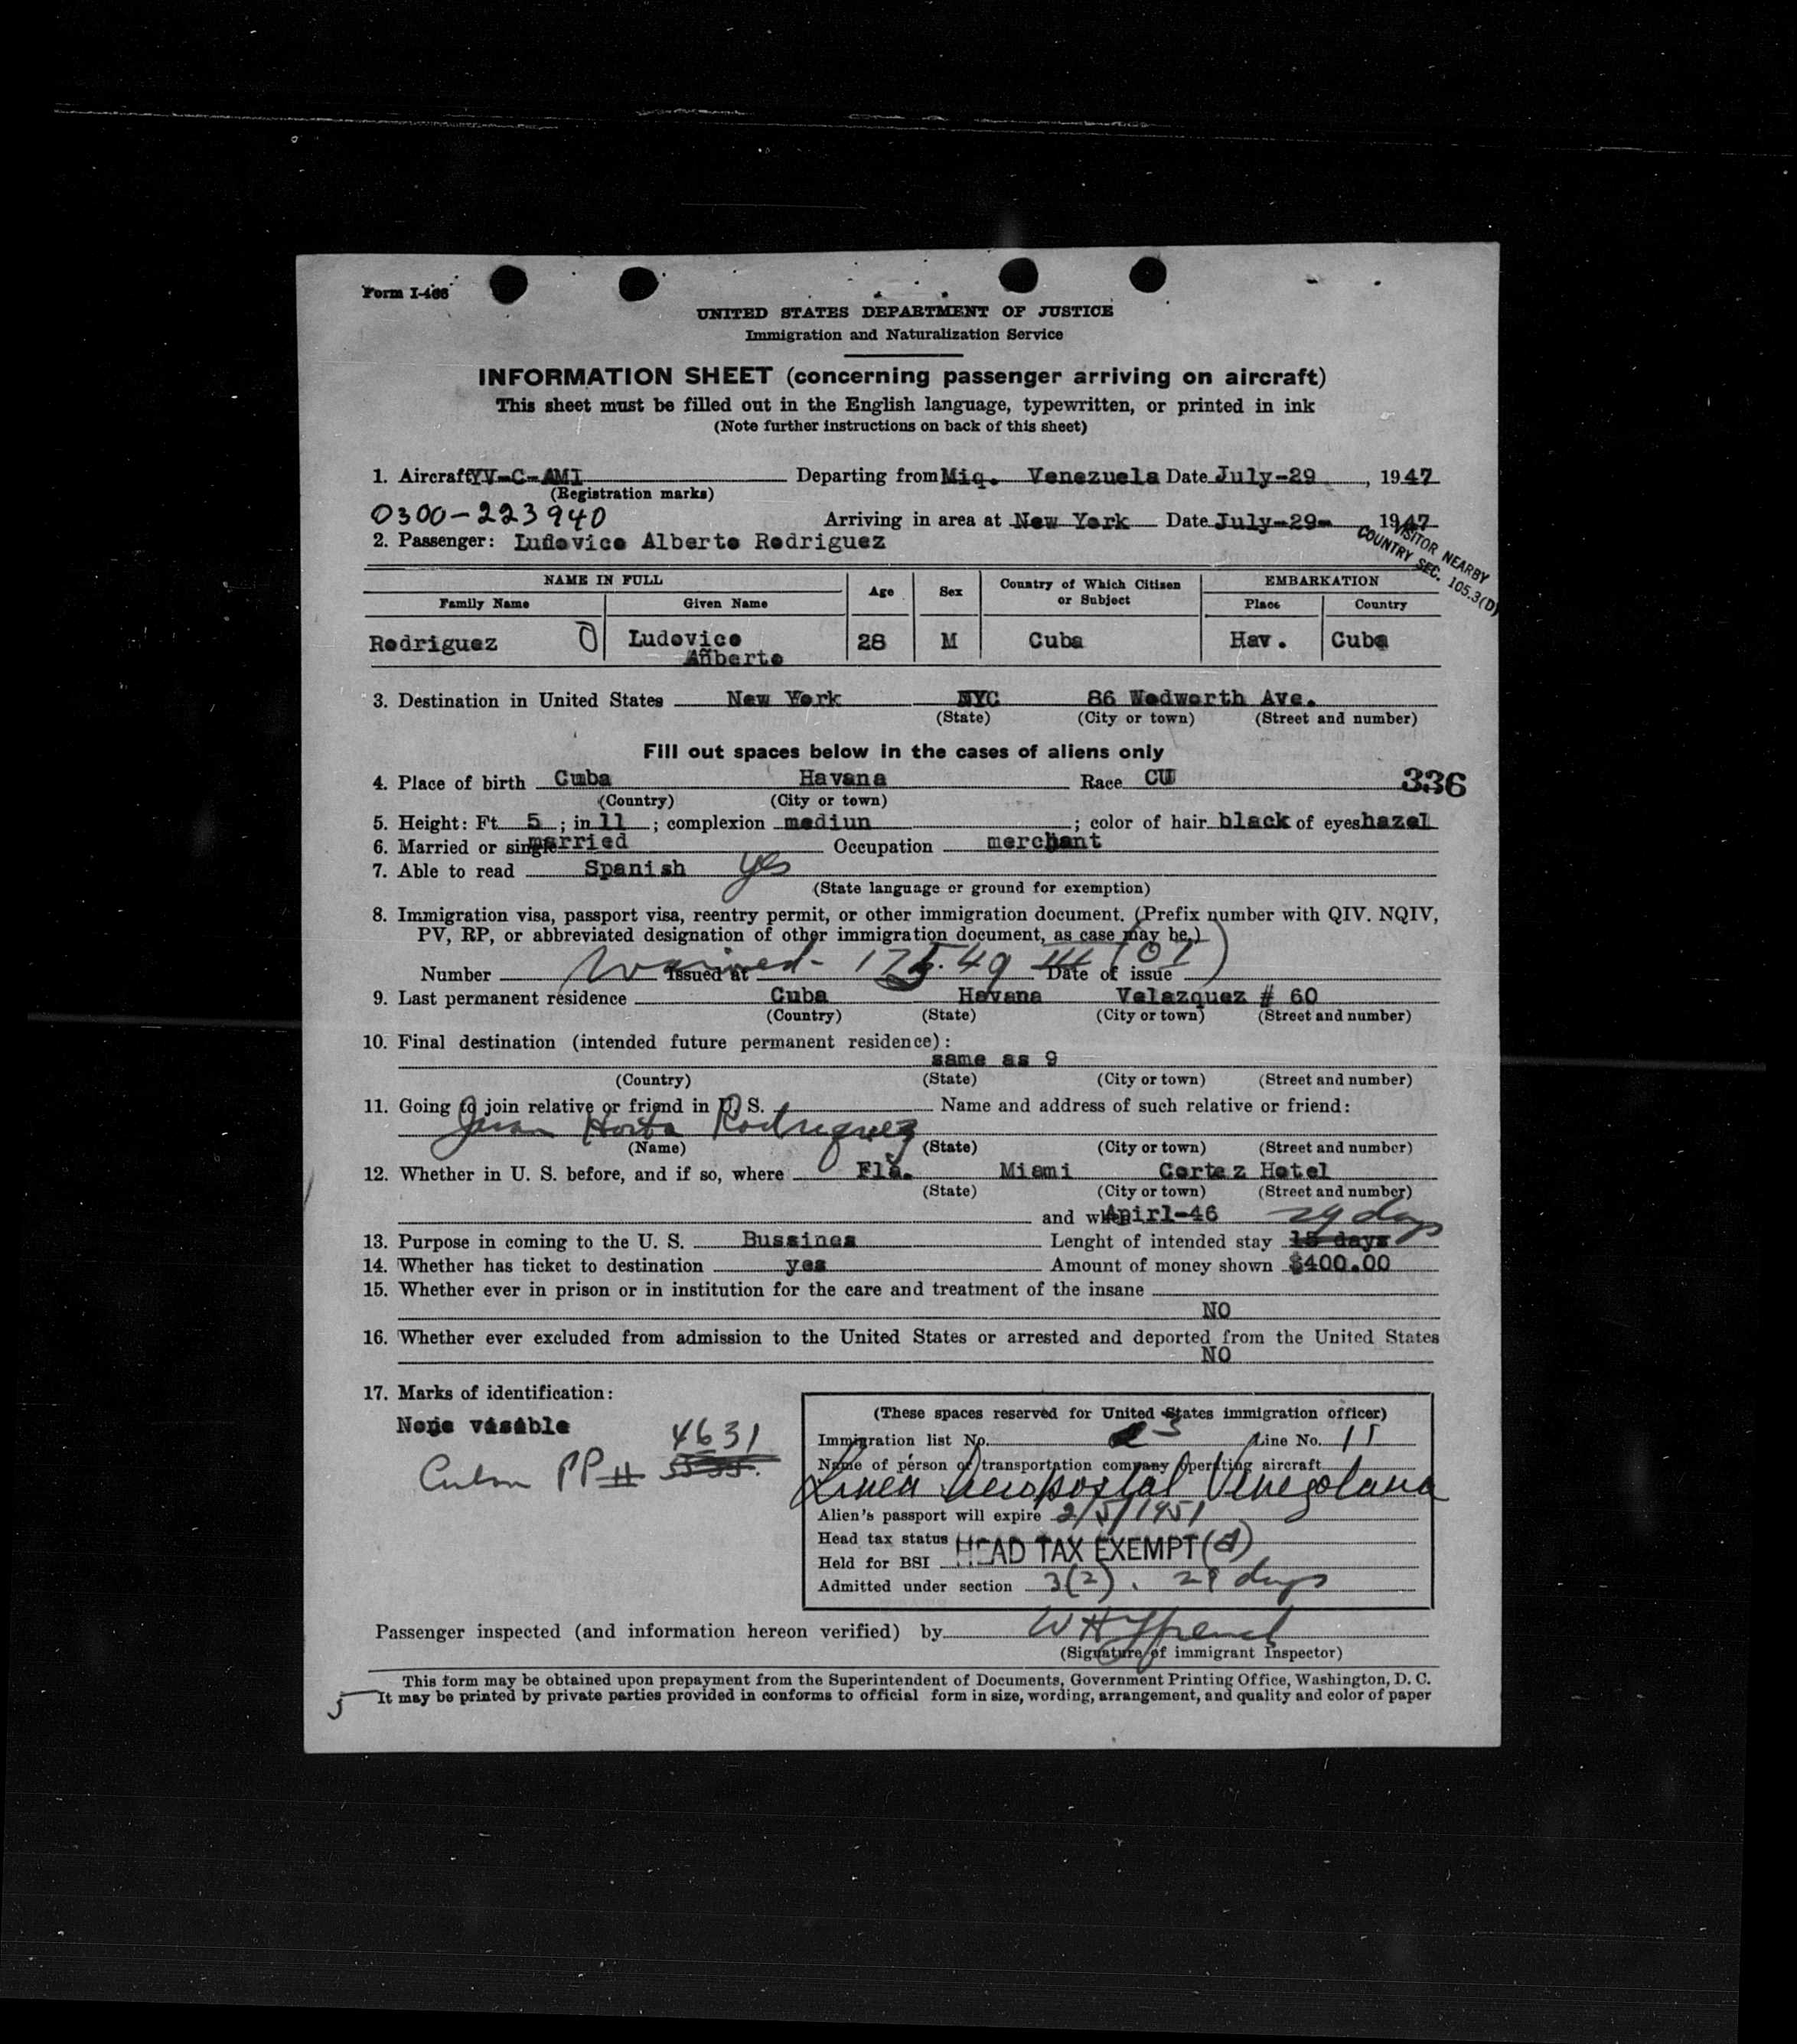 Form I-466
UNITED STATES DEPARTMENT OF JUSTICE
Immigration and Naturalization Service
INFORMATION SHEET (concerning passenger arriving on aircraft)
This sheet must be filled out in the English language, typewritten, or printed in ink
(Note further instructions on back of this sheet)
1. Aircraft YV-C-AMI Departing from Miq. Venezuela Date July-29 , 1947
(Registration marks)
0300-223940 Arriving in area at New York Date July-29- 1947
VISITOR NEARBY
COUNTRY SEC. 105.3(D)
2. Passenger: Ludovico Alberto Rodriguez
NAME IN FULL Age Sex Country of Which Citizen or Subject EMBARKATION
Family Name Given Name Place Country
Rodriguez Ludovico Alberto 28 M Cuba Hav. Cuba
3. Destination in United States New York NYC 86 Wodworth Ave.
(State) (City or town) (Street and number)
Fill out spaces below in the cases of aliens only
4. Place of birth Cuba Havana Race CU 336
(Country) (City or town)
5. Height: Ft. 5 ; in 11 ; complexion mediun ; color of hair black of eyes hazel
6. Married or single married Occupation merchant
7. Able to read Spanish yes
(State language or ground for exemption)
8. Immigration visa, passport visa, reentry permit, or other immigration document. (Prefix number with QIV. NQIV,
PV, RP, or abbreviated designation of other immigration document, as case may be.)
Number Waived- Issued at Date of issue
9. Last permanent residence Cuba Havana Velazquez # 60
(Country) (State) (City or town) (Street and number)
10. Final destination (intended future permanent residence):
same as 9
(Country) (State) (City or town) (Street and number)
11. Going to join relative or friend in U. S. Name and address of such relative or friend:
Juan Horta Rodriguez
(Name) (State) (City or town) (Street and number)
12. Whether in U. S. before, and if so, where Fla. Miami Cortez Hotel
(State) (City or town) (Street and number)
and when Apirl-46 29 days
13. Purpose in coming to the U. S. Bussines Lenght of intended stay 15 days
14. Whether has ticket to destination yes Amount of money shown $400.00
15. Whether ever in prison or in institution for the care and treatment of the insane
NO
16. Whether ever excluded from admission to the United States or arrested and deported from the United States
NO
17. Marks of identification:
None visible
4631
Cuban PP #
(These spaces reserved for United States immigration officer)
Immigration list No. Line No. 15
Name of person or transportation company operating aircraft
Linea Aeropostal Venezolana
Alien's passport will expire 2/5/1951
Head tax status HEAD TAX EXEMPT (d)
Held for BSI
Admitted under section 3(2). 29 days
Passenger inspected (and information hereon verified) by W H French
(Signature of immigrant Inspector)
This form may be obtained upon prepayment from the Superintendent of Documents, Government Printing Office, Washington, D. C.
It may be printed by private parties provided in conforms to official form in size, wording, arrangement, and quality and color of paper
5